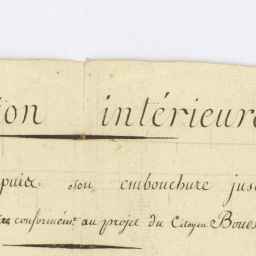 ion intérieure
puis son embouchure jus
conformémt. au projet du Citoyen Boues